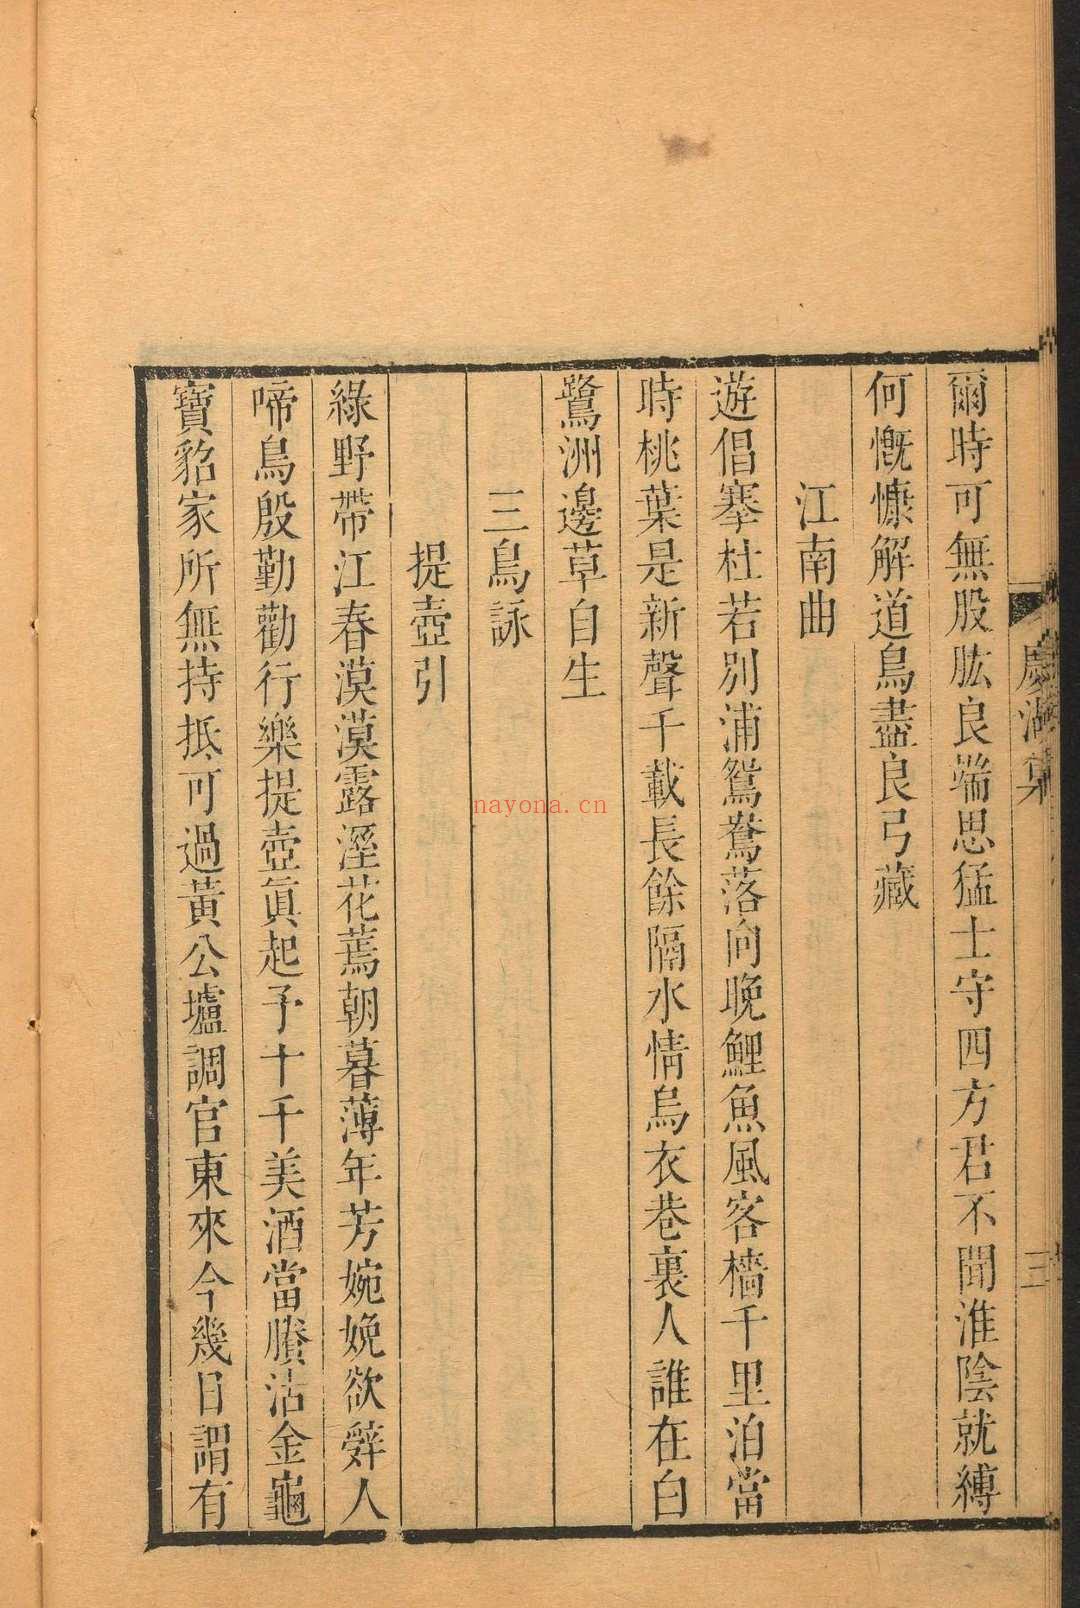 慶湖集
三
爾時可無股肱良端思猛士守四方君不聞淮陰就縛
何慨慷解道鳥盡良弓藏
江南曲
遊倡搴杜若別浦鴛鴦落向晚鯉魚風客檣千里泊當
時桃葉是新聲千載長餘隔水情烏衣巷裏人誰在白
鷺洲邊草自生
三鳥詠
提壺引
綠野帶江春漠漠露溼花蔫朝暮薄年芳婉娩欲辤人
啼鳥殷勤勸行樂提壺眞起予十千美酒當賸沽金龜
寶貂家所無持抵可過黃公壚調官東來今幾日謂有
nayona.cn